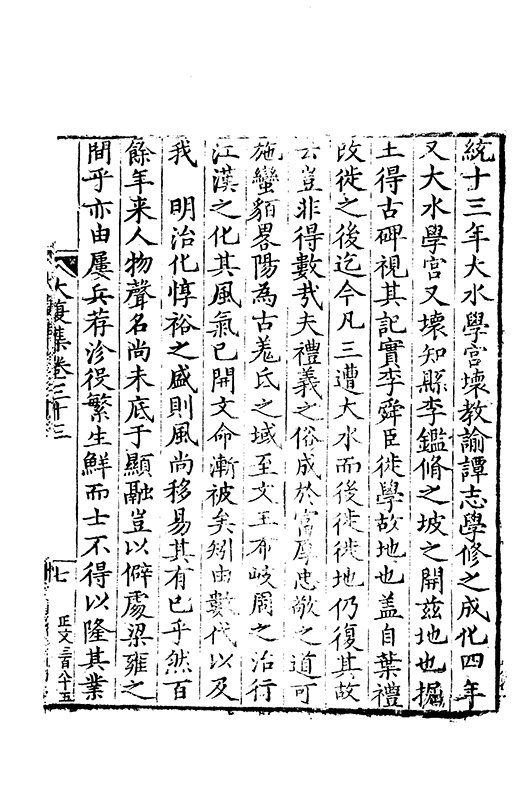 統十三年大水學宮壞教諭譚志學修之成化四年
又大水學宮又壞知縣李鑑脩之坡之開茲地也掘
土得古碑視其記實李舜臣徙學故地也盖自葉禮
改徙之後迄今凡三遭大水而後徙徙地仍復其故
云豈非得數㦲夫禮義之俗成於富厚忠敬之道可
施蠻貊畧陽為古羗氐之域至文王布岐周之治行
江漢之化其風氣已開文命漸被矣矧由數代以及
我 明治化惇裕之盛則風尚移易其有已乎然百
餘年来人物聲名尚未底于顯融豈以僻處梁雍之
間乎亦由屢兵荐沴役繁生鮮而士不得以隆其業
大復集卷三十三
七
正文三百八十五